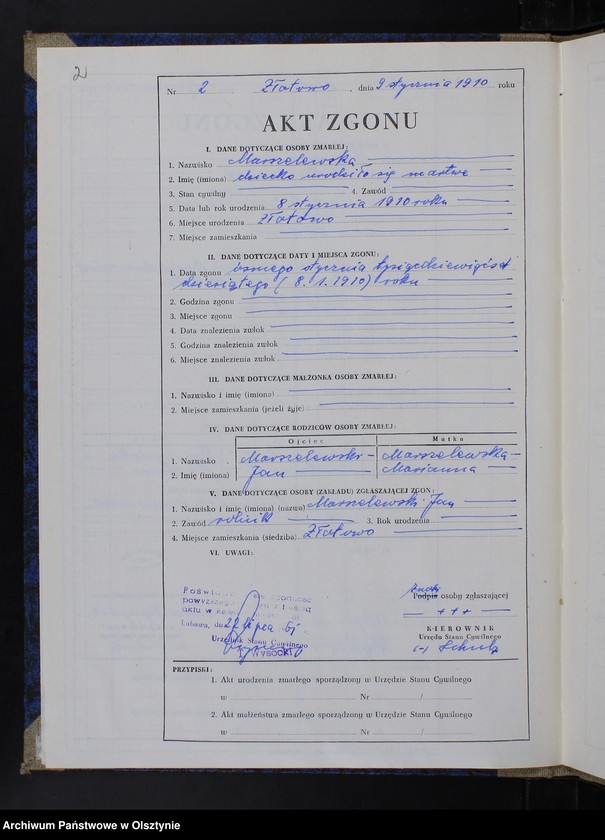 2
Nr 2 Złotowo, dnia 9 stycznia 1910 roku
AKT ZGONU
I. DANE DOTYCZĄCE OSOBY ZMARŁEJ:
1. Nazwisko Marszelewska
2. Imię (imiona) dziecko urodziło się martwe
3. Stan cywilny 4. Zawód
5. Data lub rok urodzenia 8 stycznia 1910 roku
6. Miejsce urodzenia Złotowo
7. Miejsce zamieszkania
II. DANE DOTYCZĄCE DATY I MIEJSCA ZGONU:
1. Data zgonu ósmego stycznia tysiąc dziewięćset
dziesiątego (8.1.1910) roku
2. Godzina zgonu
3. Miejsce zgonu
4. Data znalezienia zwłok
5. Godzina znalezienia zwłok
6. Miejsce znalezienia zwłok
III. DANE DOTYCZĄCE MAŁŻONKA OSOBY ZMARŁEJ:
1. Nazwisko i imię (imiona)
2. Miejsce zamieszkania (jeżeli żyje)
IV. DANE DOTYCZĄCE RODZICÓW OSOBY ZMARŁEJ:
Ojciec Matka
1. Nazwisko Marszelewski Marszelewska
2. Imię (imiona) Jan Marianna
V. DANE DOTYCZĄCE OSOBY (ZAKŁADU) ZGŁASZAJĄCEJ ZGON:
1. Nazwisko i imię (imiona) (nazwa) Marszelewski Jan
2. Zawód rolnik 3. Rok urodzenia
4. Miejsce zamieszkania (siedziba) Złotowo
VI. UWAGI:
Poświadcza się zgodność
powyższego z treścią
aktu w
Lubawa, dn. 22 lipca
Urzędnik Stanu Cywilnego
WYSOCKI
znaki
Podpis osoby zgłaszającej
+++
KIEROWNIK
Urzędu Stanu Cywilnego
(-) Schulz
PRZYPISKI:
1. Akt urodzenia zmarłego sporządzony w Urzędzie Stanu Cywilnego
w Nr /
2. Akt małżeństwa zmarłego sporządzony w Urzędzie Stanu Cywilnego
w Nr /
Archiwum Państwowe w Olsztynie